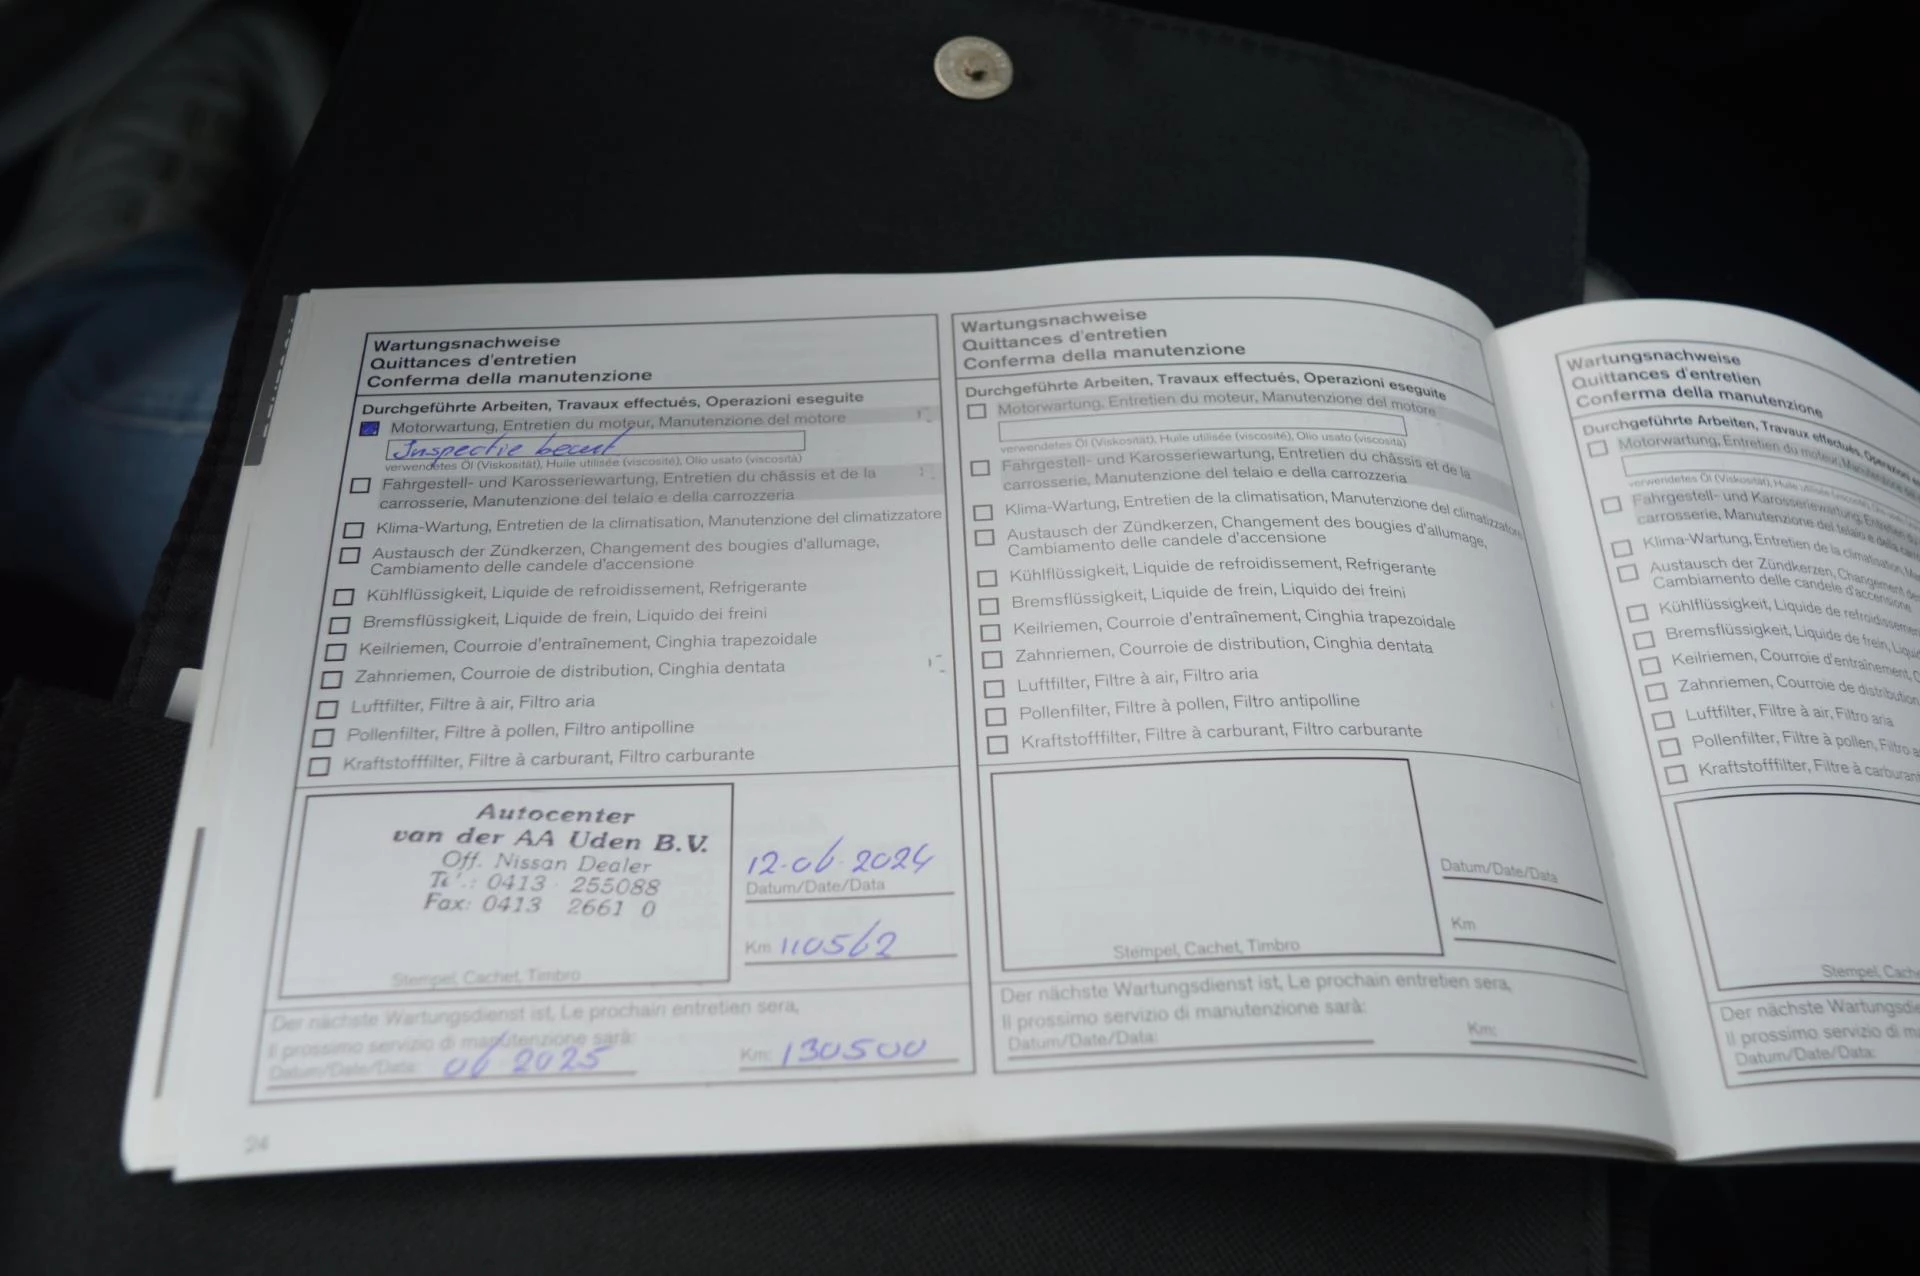 Wartungsnachweise
Quittances d'entretien
Conferma della manutenzione
Durchgeführte Arbeiten, Travaux effectués, Operazioni eseguite
Motorwartung, Entretien du moteur, Manutenzione del motore
Inspectie beurt
verwendetes Öl (Viskosität), Huile utilisée (viscosité), Olio usato (viscosità)
Fahrgestell- und Karosseriewartung, Entretien du châssis et de la
carrosserie, Manutenzione del telaio e della carrozzeria
Klima-Wartung, Entretien de la climatisation, Manutenzione del climatizzatore
Austausch der Zündkerzen, Changement des bougies d'allumage,
Cambiamento delle candele d'accensione
Kühlflüssigkeit, Liquide de refroidissement, Refrigerante
Bremsflüssigkeit, Liquide de frein, Liquido dei freini
Keilriemen, Courroie d'entraînement, Cinghia trapezoidale
Zahnriemen, Courroie de distribution, Cinghia dentata
Luftfilter, Filtre à air, Filtro aria
Pollenfilter, Filtre à pollen, Filtro antipolline
Kraftstofffilter, Filtre à carburant, Filtro carburante
Autocenter
van der AA Uden B.V.
Off. Nissan Dealer
0413 255088
Fax: 0413 2661 0
Stempel, Cachet, Timbro
12-06-2024
Datum/Date/Data
Km 110562
Der nächste Wartungsdienst ist, Le prochain entretien sera,
Il prossimo servizio di manutenzione sarà:
Datum/Date/Data: 06 2025 Km: 130500
24
Wartungsnachweise
Quittances d'entretien
Conferma della manutenzione
Durchgeführte Arbeiten, Travaux effectués, Operazioni eseguite
Motorwartung, Entretien du moteur, Manutenzione del motore
verwendetes Öl (Viskosität), Huile utilisée (viscosité), Olio usato (viscosità)
Fahrgestell- und Karosseriewartung, Entretien du châssis et de la
carrosserie, Manutenzione del telaio e della carrozzeria
Klima-Wartung, Entretien de la climatisation, Manutenzione del climatizzatore
Austausch der Zündkerzen, Changement des bougies d'allumage,
Cambiamento delle candele d'accensione
Kühlflüssigkeit, Liquide de refroidissement, Refrigerante
Bremsflüssigkeit, Liquide de frein, Liquido dei freini
Keilriemen, Courroie d'entraînement, Cinghia trapezoidale
Zahnriemen, Courroie de distribution, Cinghia dentata
Luftfilter, Filtre à air, Filtro aria
Pollenfilter, Filtre à pollen, Filtro antipolline
Kraftstofffilter, Filtre à carburant, Filtro carburante
Datum/Date/Data
Km
Stempel, Cachet, Timbro
Der nächste Wartungsdienst ist, Le prochain entretien sera,
Il prossimo servizio di manutenzione sarà:
Datum/Date/Data: Km:
Wartungsnachweise
Quittances d'entretien
Conferma della manutenzione
Durchgeführte Arbeiten, Travaux effectués, Operazioni
Motorwartung, Entretien du moteur,
verwendetes Öl (Viskosität), Huile utilisée
Fahrgestell- und Karosseriewartung,
carrosserie, Manutenzione del telaio e della
Klima-Wartung, Entretien de la climatisation,
Austausch der Zündkerzen, Changement
Cambiamento delle candele d'accensione
Kühlflüssigkeit, Liquide de
Bremsflüssigkeit, Liquide de frein,
Keilriemen, Courroie d'entraînement,
Zahnriemen, Courroie de distribution
Luftfilter, Filtre à air, Filtro aria
Pollenfilter, Filtre à pollen, Filtro
Kraftstofffilter, Filtre à
Stempel,
Der nächste
Il prossimo servizio di
Datum/Date/Data: